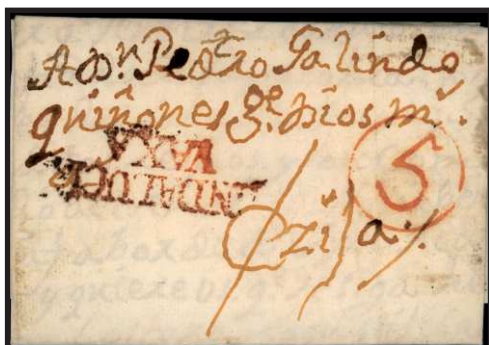 A Dn. Pedro Galindo
quiñones ge. Dios ms.
ANDALUCIA
VAXA
5
Ezija